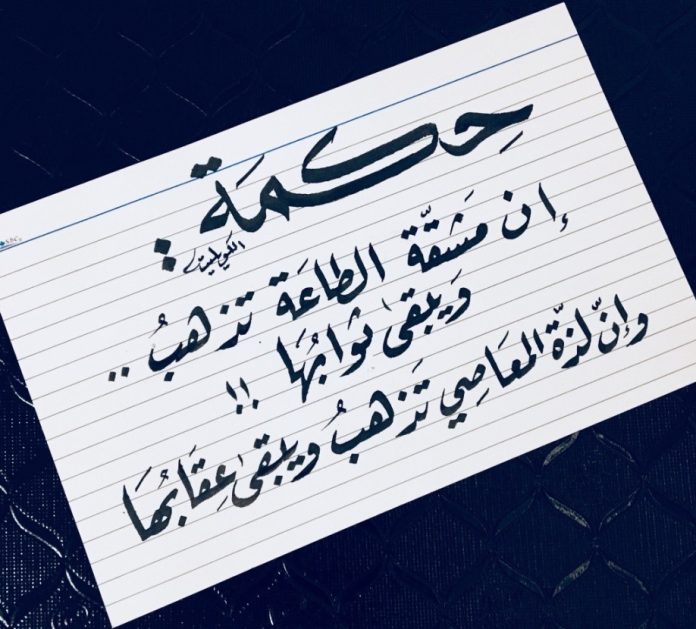 حِكمَة :
إن مَشقّة الطاعَة تذهبُ ..
وَيبقىٰ ثوابُهَا !!
وإنّ لذّة المعَاصِي تَذهبُ ويبقىٰ عِقَابُهَا